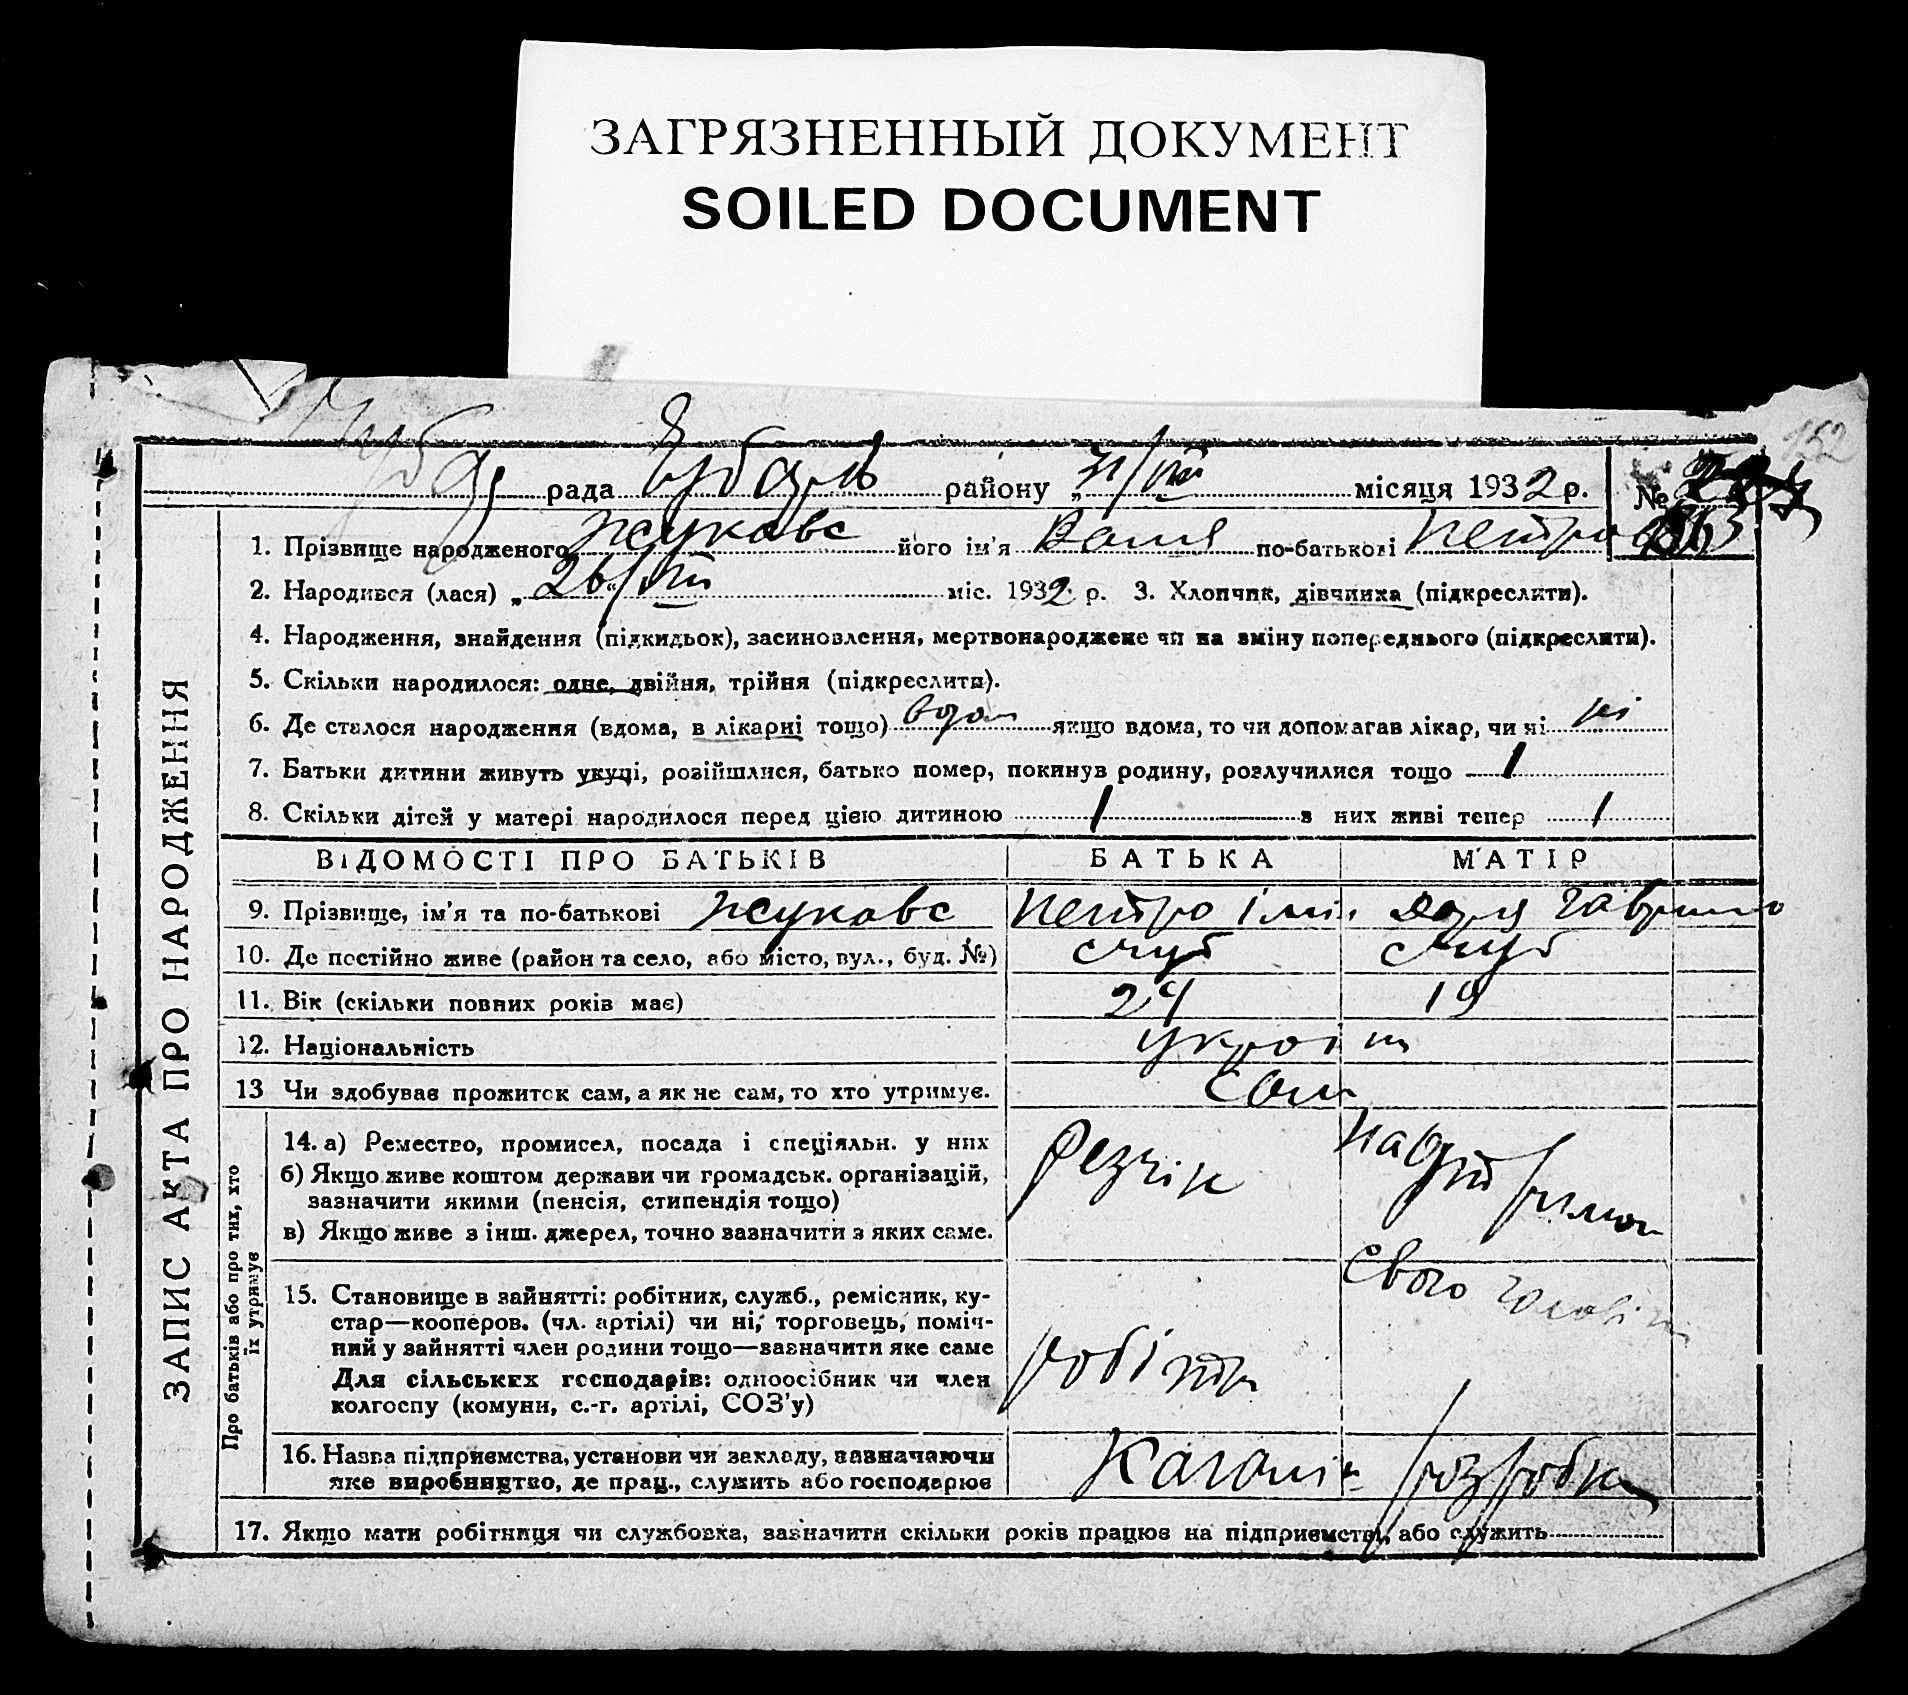 ЗАГРЯЗНЕННЫЙ ДОКУМЕНТ
SOILED DOCUMENT
152
рада району „ 31/VIII місяця 1932 р. №
1. Прізвище народженого Жукавс його ім'я Валя по-батькові Петров
2. Народився (лася) „ 26/VIII міс. 1932 р. 3. Хлопчик, дівчинка (підкреслити).
4. Народження, знайдення (підкидьок), засиновлення, мертвонароджене чи на зміну попереднього (підкреслити).
5. Скільки народилося: одне, двійня, трійня (підкреслити).
6. Де сталося народження (вдома, в лікарні тощо) вдом якщо вдома, то чи допомагав лікар, чи ні ні
7. Батьки дитини живуть укупі, розійшлися, батько помер, покинув родину, розлучилися тощо
8. Скільки дітей у матері народилося перед цією дитиною 1 з них живі тепер 1
ВІДОМОСТІ ПРО БАТЬКІВ БАТЬКА МАТІР
9. Прізвище, ім'я та по-батькові Жукавс Петро
10. Де постійно живе (район та село, або місто, вул., буд. №)
11. Вік (скільки повних років має) 24 19
12. Національність україн
13 Чи здобував прожиток сам, а як не сам, то хто утримує. сам
14. а) Ремество, промисел, посада і спеціяльн. у них
б) Якщо живе коштом держави чи громадськ. організацій,
зазначити якими (пенсія, стипендія тощо)
в) Якщо живе з інш. джерел, точно зазначити з яких саме.
Резчік
свого
15. Становище в зайнятті: робітник, служб., ремісник, ку-
стар—кооперов. (чл. артілі) чи ні, торговець, поміч-
ний у зайнятті член родини тощо—зазначити яке саме
Для сільських господарів: одноосібник чи член
колгоспу (комуни, с.-г. артілі, СОЗ'у)
робітн
16. Назва підприємства, установи чи закладу, зазначаючи
яке виробництво, де прац., служить або господарює
17. Якщо мати робітниця чи службовка, зазначити скільки років працює на підприємстві, або служить
ЗАПИС АКТА ПРО НАРОДЖЕННЯ
Про батьків або про тих, хто
їх утримує